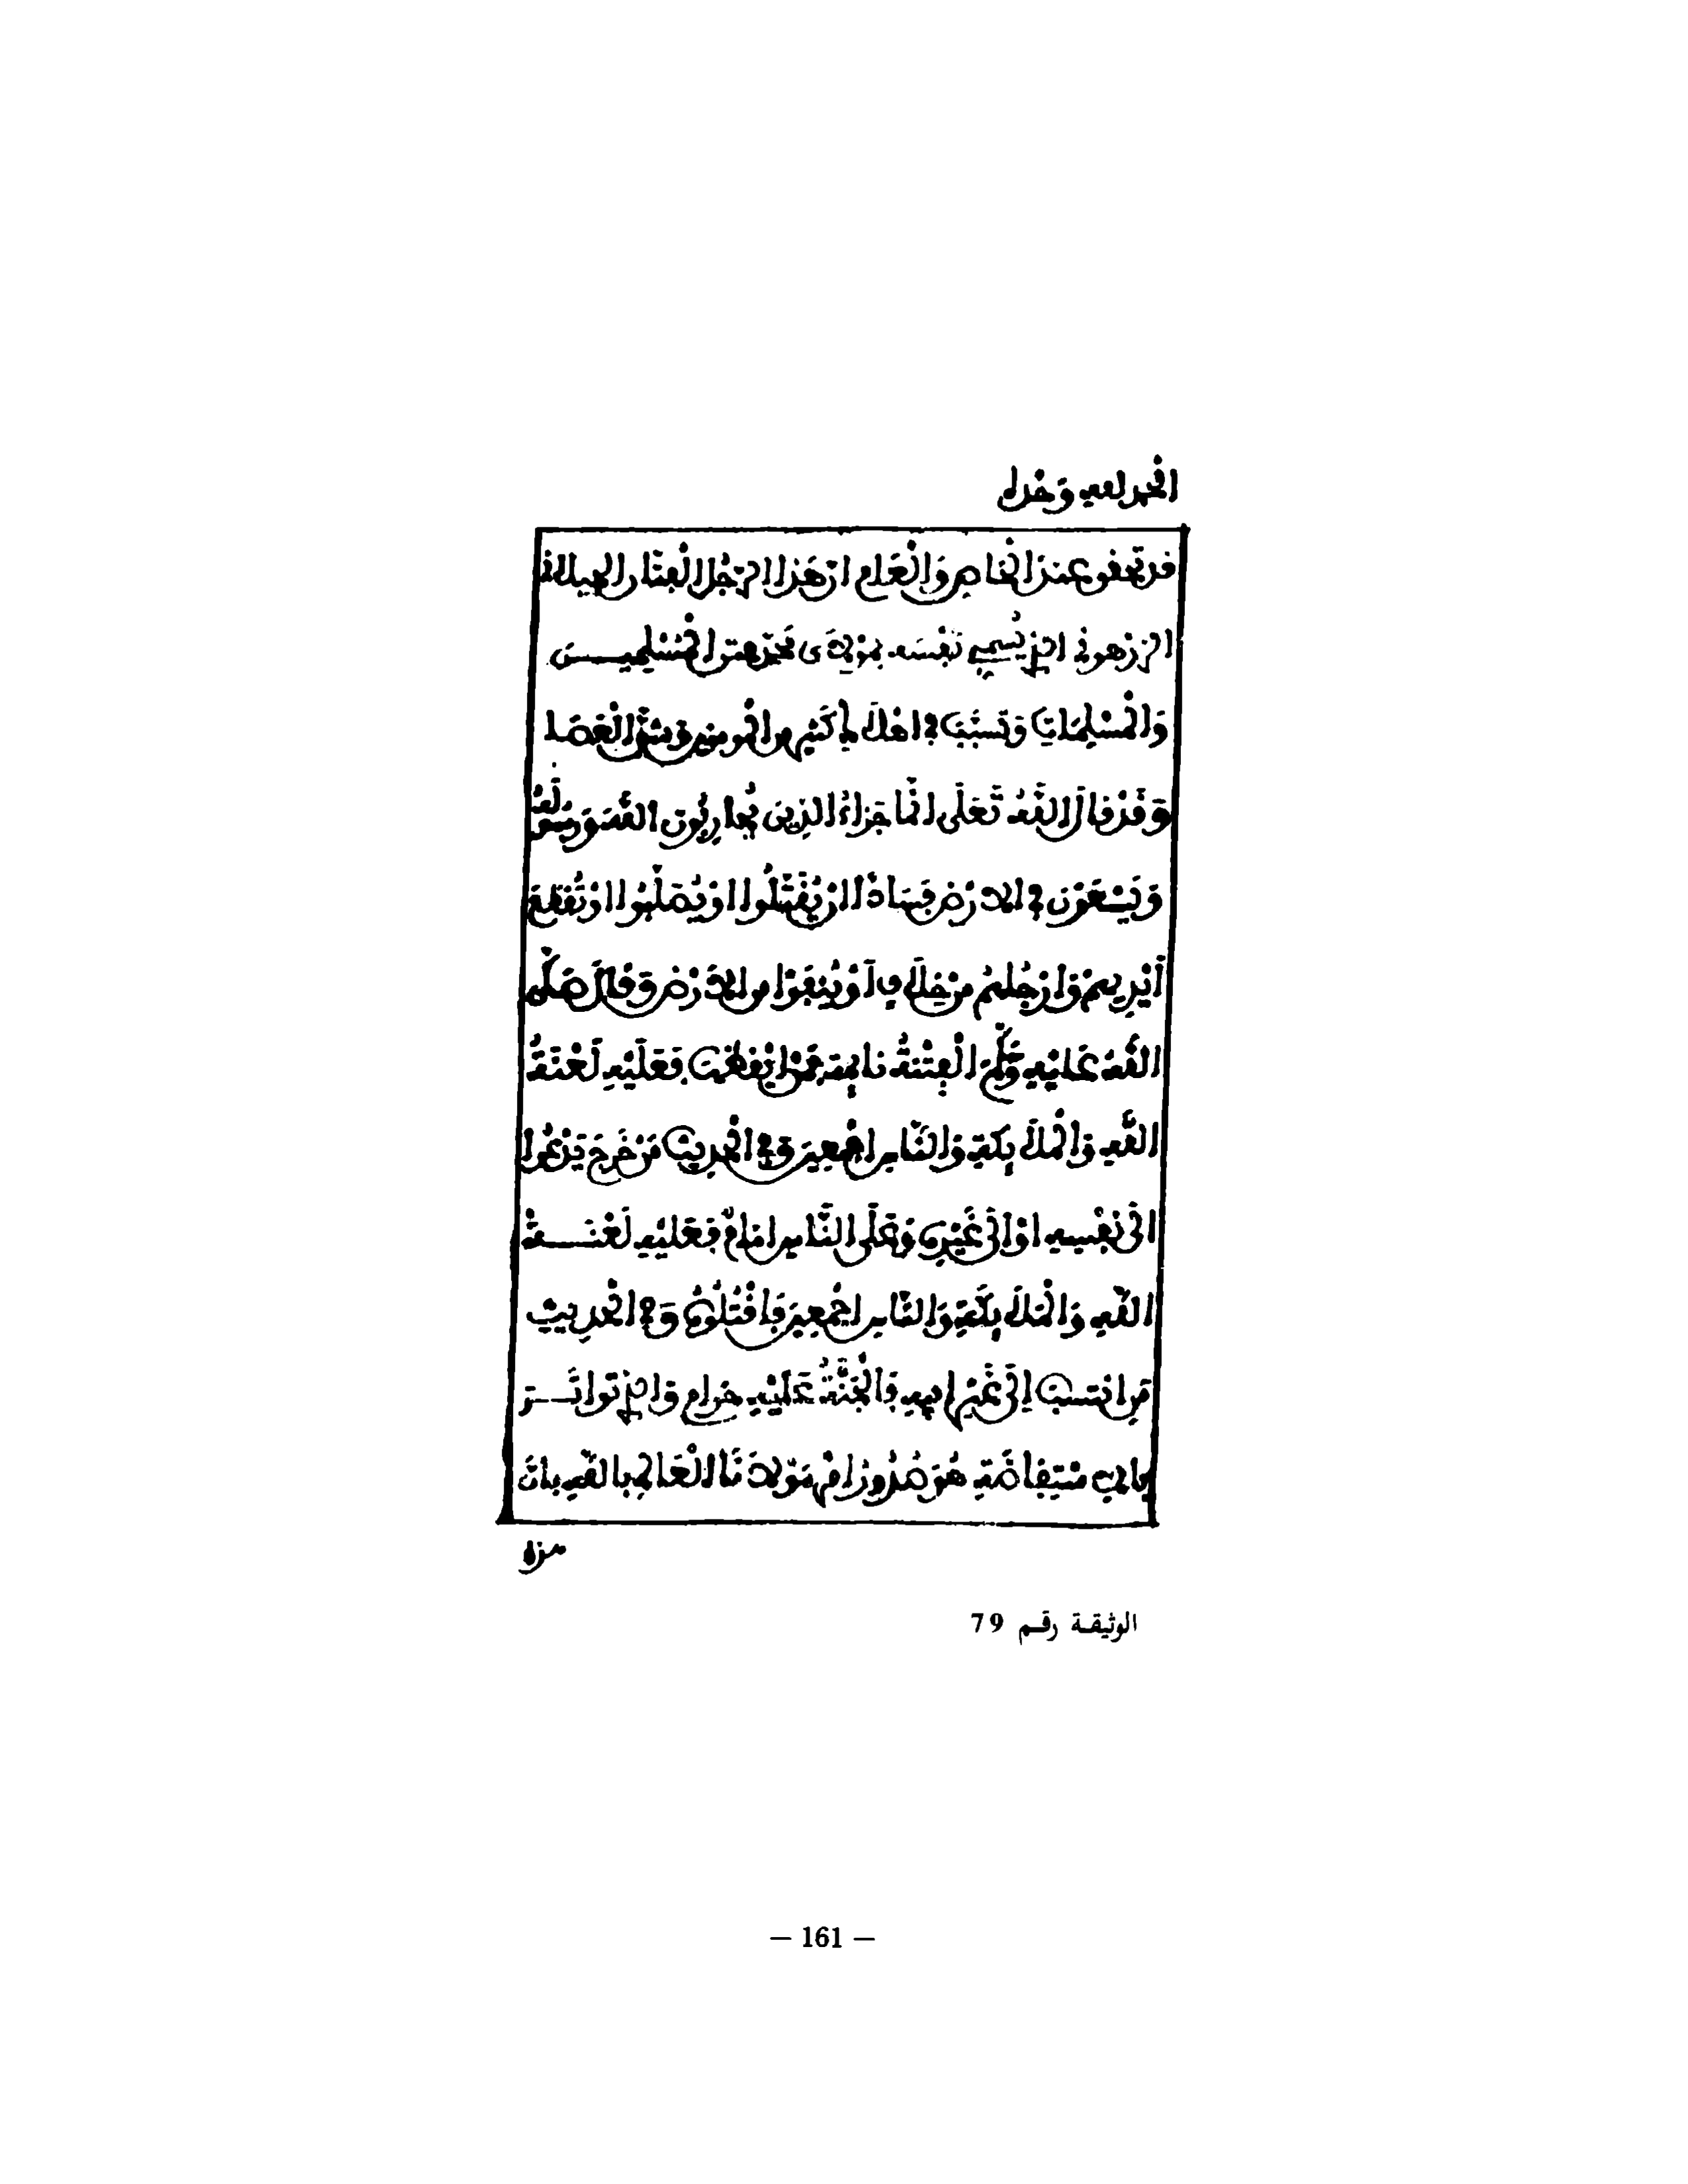 الحمد لله وحده
قد تحقق عند الخاص وَالْعَام ان هَذا الرَّجُل الْفتّان
الزرْهوني الذي يُسمي نفسَه بمَوْلاَي محمّد هتر الْمُسْلِميــن
وَالْمسْلِمَات وَتسبّبَ في اهْلاَك كَثِير من الْمومنين وشقّ الْعَصَا
وَقَدْ قالَ اللَّهُ تَعَلَى انَّمَا جَزاءُ الذِينَ يُحارِبُونَ اللَّهَ وَرَسُولَهُ
وَيَسْعَوْنَ في الاَرْضِ فَسَادًا انْ يُقَتَّلُوا اوْ يُصَلَّبُوا اوْ تُقَطَّعَ
أَيْدِيهِمْ وَارْجُلُهُمْ مِنْ خِلَافٍ أَوْ يُنْفَوْا من الاَرْضِ وَقَالَ صَلَّى
اللَّهُ عَلَيْهِ وَسَلَّمَ الْفِتْنَةُ نايمة فمن ايْقظهَا فَعَلَيْهِ لَعْنَةُ
اللَّهِ وَالْمَلاَيِكَةِ وَالنَّاسِ اجْمَعِينَ وَفي الْحَدِيث مَنْ خَرَجَ يَدْعُوا
الَى نَفْسِهِ اوْ الَى غَيْرِهِ وَعَلَى النَّاسِ امَامٌ فَعَلَيْهِ لَعْنَــةُ
اللَّهِ وَالْمَلاَيِكَةِ وَالنَّاسِ اجْمَعِينَ فَاقْتُلُوهُ وَفي الْحَدِيثِ
مَن انتسب إلَى غَيْر ابِيهِ فَالْجَنَّةُ عَلَيْهِ حَرَام وَالذي تَواتَــرَ
مُسْتِفاضَة هُوَ مَوْلاَنَا الْعَالِم بِاللَّهِ بِانَّ
هزه
الوثيقة رقم 79
– 161 –